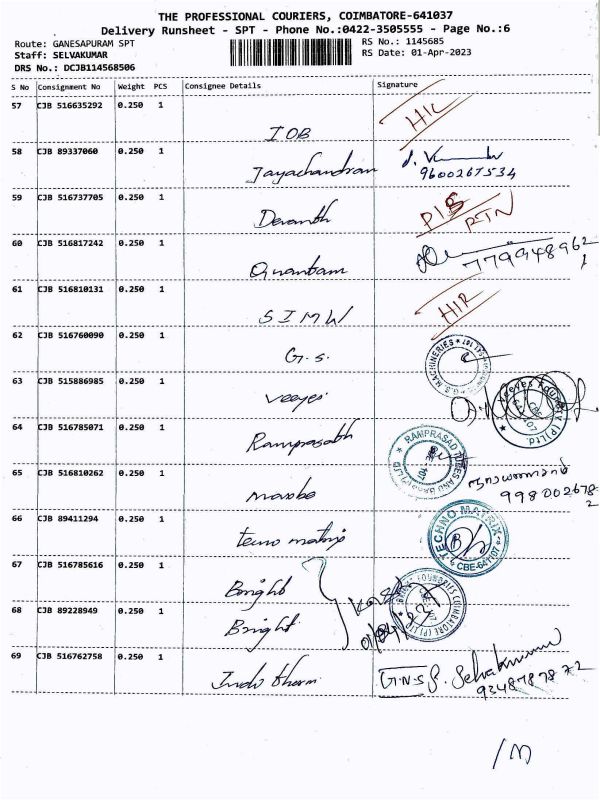 THE PROFESSIONAL COURIERS, COIMBATORE-641037
Delivery Runsheet - SPT - Phone No.:0422-3505555 - Page No.:6
Route: GANESAPURAM SPT
RS No.: 1145685
Staff: SELVAKUMAR
RS Date: 01-Apr-2023
DRS No.: DCJB114568506
S No Consignment No Weight PCS Consignee Details Signature
57 CJB 516635292 0.250 1
IOB
58 CJB 89337060 0.250 1
Jayachandran
9600267534
59 CJB 516737705 0.250 1
Devanth
RTN
60 CJB 516817242 0.250 1
Quantam
7799489621
61 CJB 516810131 0.250 1
SIMW
62 CJB 516760090 0.250 1
G.S.
G.S. MACHINERIES
63 CJB 515886985 0.250 1
veeyes
Veeyes Foundry (P) Ltd.
64 CJB 516785071 0.250 1
Ramprasath
RAMPRASAD
65 CJB 516810262 0.250 1
9980026782
66 CJB 89411294 0.250 1
tecno matrix
TECHNO MATRIX
CBE-641107
67 CJB 516785616 0.250 1
Bright
68 CJB 89228949 0.250 1
Bright
FOUNDRIES COIMBATORE (P) LTD
69 CJB 516762758 0.250 1
Indo therm
G.N.S
S. Selvakumar
9348787872